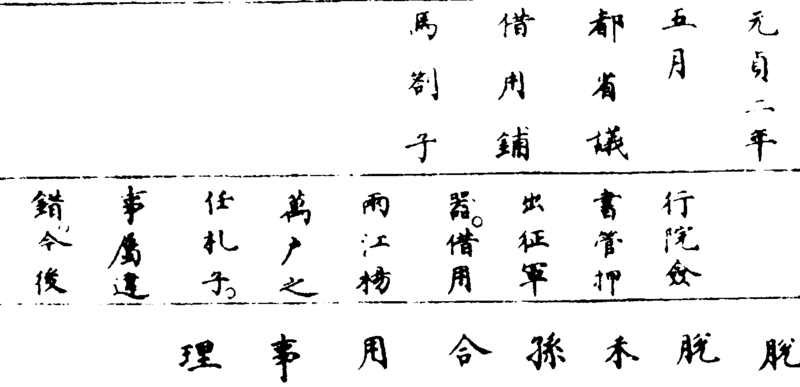 元貞二年
五月
都省議
借用鋪
馬劄子
行院僉
書管押
出征軍
器。借用
兩江楊
萬户之
任札子。
事屬違
錯今後
脱脱禾孫合用事理